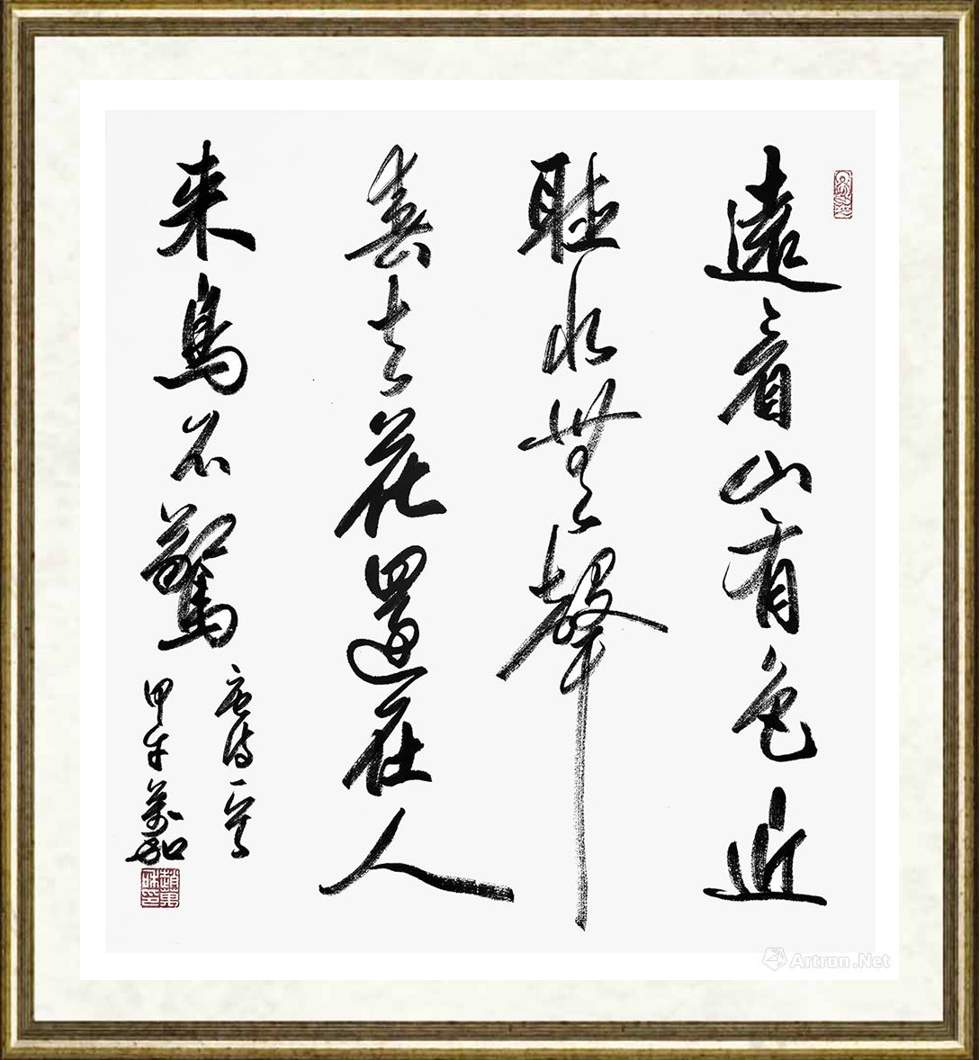 遠看山有色近
聽水無聲
春去花還在人
来鳥不驚
唐詩一首
甲午萬和
Artron.Net